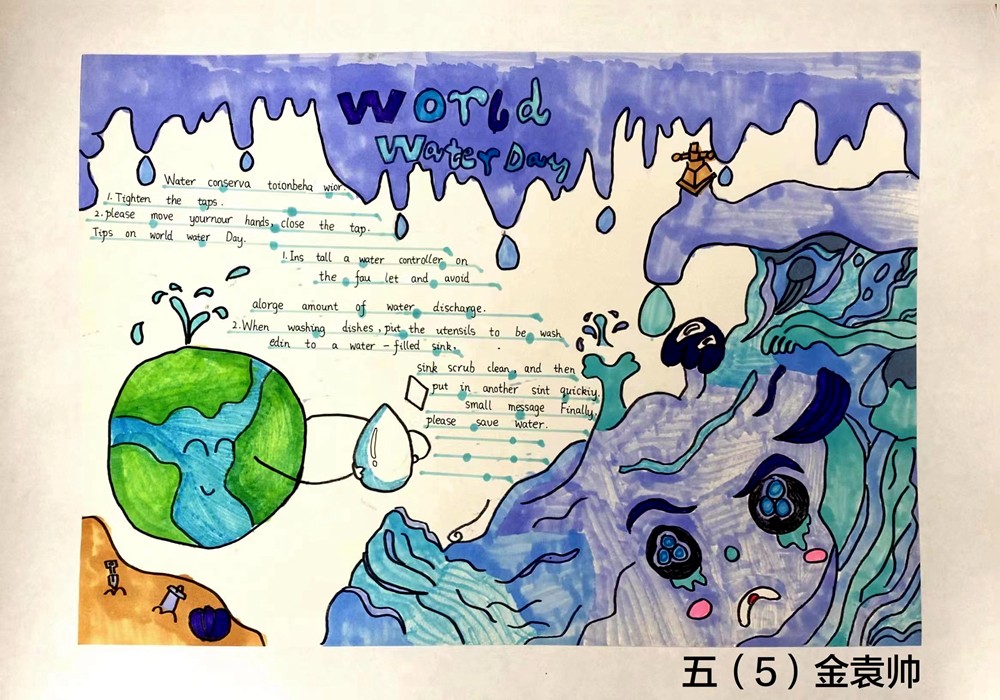 WOrld
Water Day
Water conserva toionbeha wior.
1. Tighten the taps.
2. please move yournour hands, close the tap.
Tips on world water Day.
1. Ins tall a water controller on
the fau let and avoid
alorge amount of water discharge.
2. When washing dishes, put the utensils to be wash
edin to a water - filled sink,
sink scrub clean, and then
put in another sint quickiy.
small message Finally,
please save water.
五（5）金袁帅